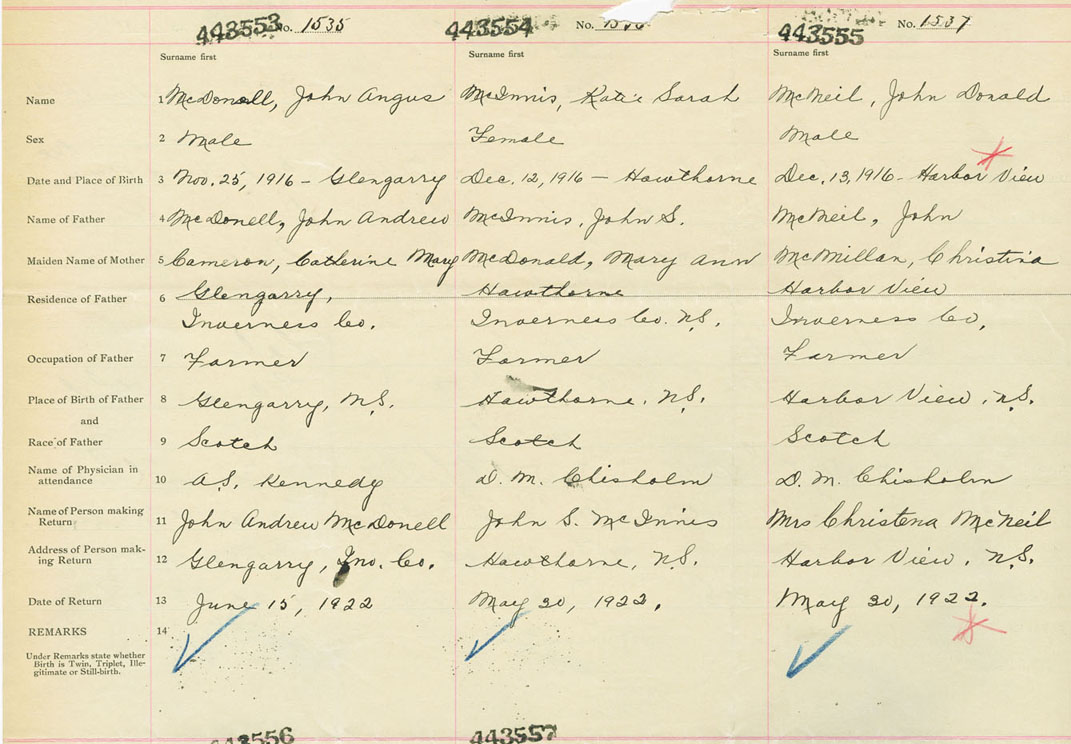 443553 No. 1535 443554 No. 443555 No. 1537
Surname first Surname first Surname first
Name 1 McDonell, John Angus McInnis, Katie Sarah McNeil, John Donald
Sex 2 Male Female Male
Date and Place of Birth 3 Nov. 25, 1916 - Glengarry Dec. 12, 1916 - Hawthorne Dec. 13, 1916 - Harbor View
Name of Father 4 McDonell, John Andrew McInnis, John S. McNeil, John
Maiden Name of Mother 5 Cameron, Catherine Mary McDonald, Mary Ann McMillan, Christina
Residence of Father 6 Glengarry, Hawthorne Harbor View
Inverness Co. Inverness Co. N.S. Inverness Co.
Occupation of Father 7 Farmer Farmer Farmer
Place of Birth of Father 8 Glengarry, N.S. Hawthorne, N.S. Harbor View, N.S.
and
Race of Father 9 Scotch Scotch Scotch
Name of Physician in
attendance 10 A.S. Kennedy D. M. Chisholm D. M. Chisholm
Name of Person making
Return 11 John Andrew McDonell John S. McInnis Mrs Christena McNeil
Address of Person mak-
ing Return 12 Glengarry, Inv. Co. Hawthorne, N.S. Harbor View, N.S.
Date of Return 13 June 15, 1922 May 30, 1922. May 30, 1922.
REMARKS 14
Under Remarks state whether
Birth is Twin, Triplet, Ille-
gitimate or Still-birth.
443556 443557